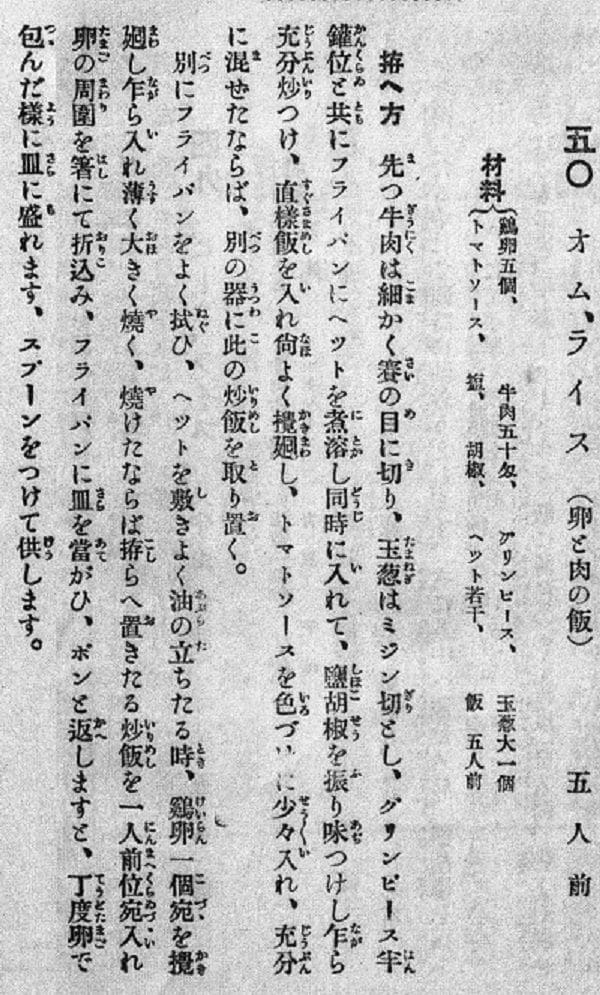 五〇 オムライス (卵と肉の飯) 五人前
材料 鶏卵五個、 牛肉五十匁、 グリンピース、 玉葱大一個
トマトソース、 塩、 胡椒、 ヘット若干、 飯 五人前
拵へ方 先つ牛肉は細かく賽の目に切り、玉葱はミジン切とし、グリンピース半
鑵位と共にフライパンにヘットを煮溶し同時に入れて、鹽胡椒を振り味つけし乍ら
充分炒つけ、直樣飯を入れ尙よく攪廻し、トマトソースを色づけに少々入れ、充分
に混ぜたならば、別の器に此の炒飯を取り置く。
別にフライパンをよく拭ひ、ヘットを敷きよく油の立ちたる時、鷄卵一個宛を攪
廻し乍ら入れ薄く大きく燒く、燒けたならば拵らへ置きたる炒飯を一人前位宛入れ
卵の周圍を箸にて折込み、フライパンに皿を當がひ、ポンと返しますと、丁度卵で
包んだ樣に皿に盛れます、スプーンをつけて供します。